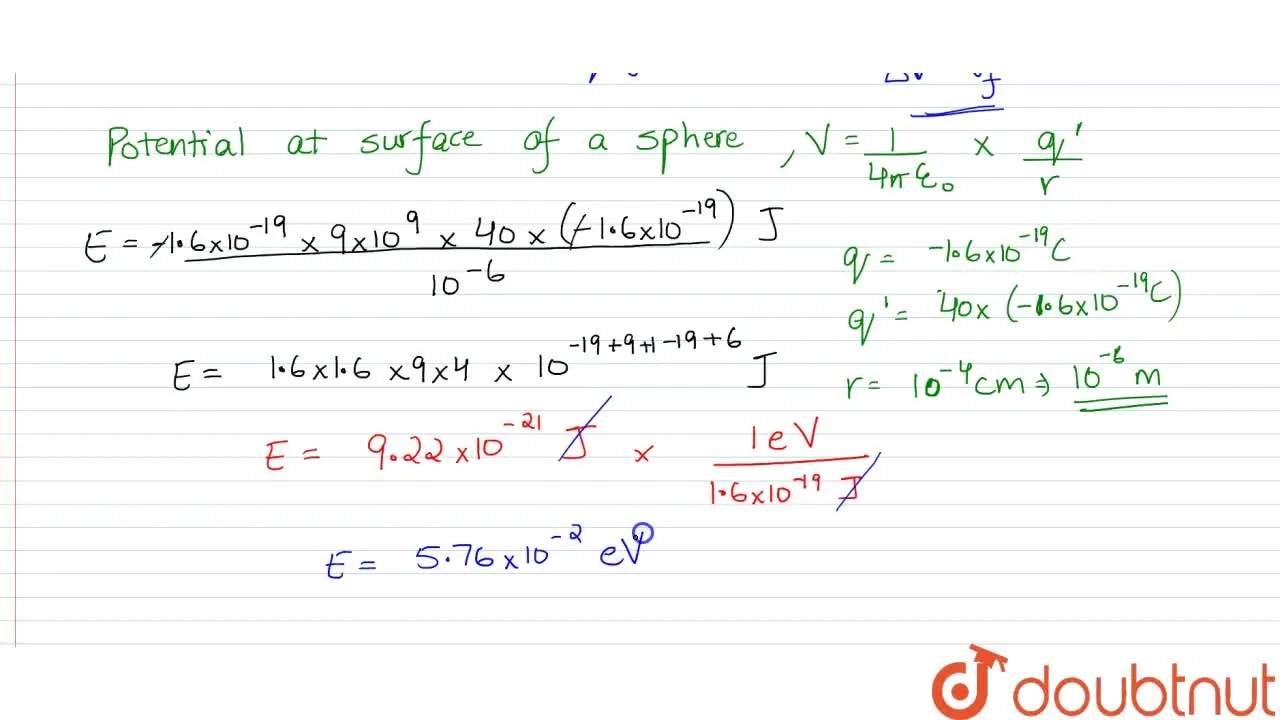 Potential at surface of a sphere , V = 1/4πε₀ × q'/r
E = -1.6×10⁻¹⁹ × 9×10⁹ × 40 × (-1.6×10⁻¹⁹) / 10⁻⁶ J
q = -1.6×10⁻¹⁹ C
q' = 40× (-1.6×10⁻¹⁹ C)
E = 1.6×1.6 ×9×4 × 10⁻¹⁹⁺⁹⁺¹⁻¹⁹⁺⁶ J
r = 10⁻⁴ cm ⇒ 10⁻⁶ m
E = 9.22×10⁻²¹ J × 1eV / 1.6×10⁻¹⁹ J
E = 5.76×10⁻² eV
doubtnut